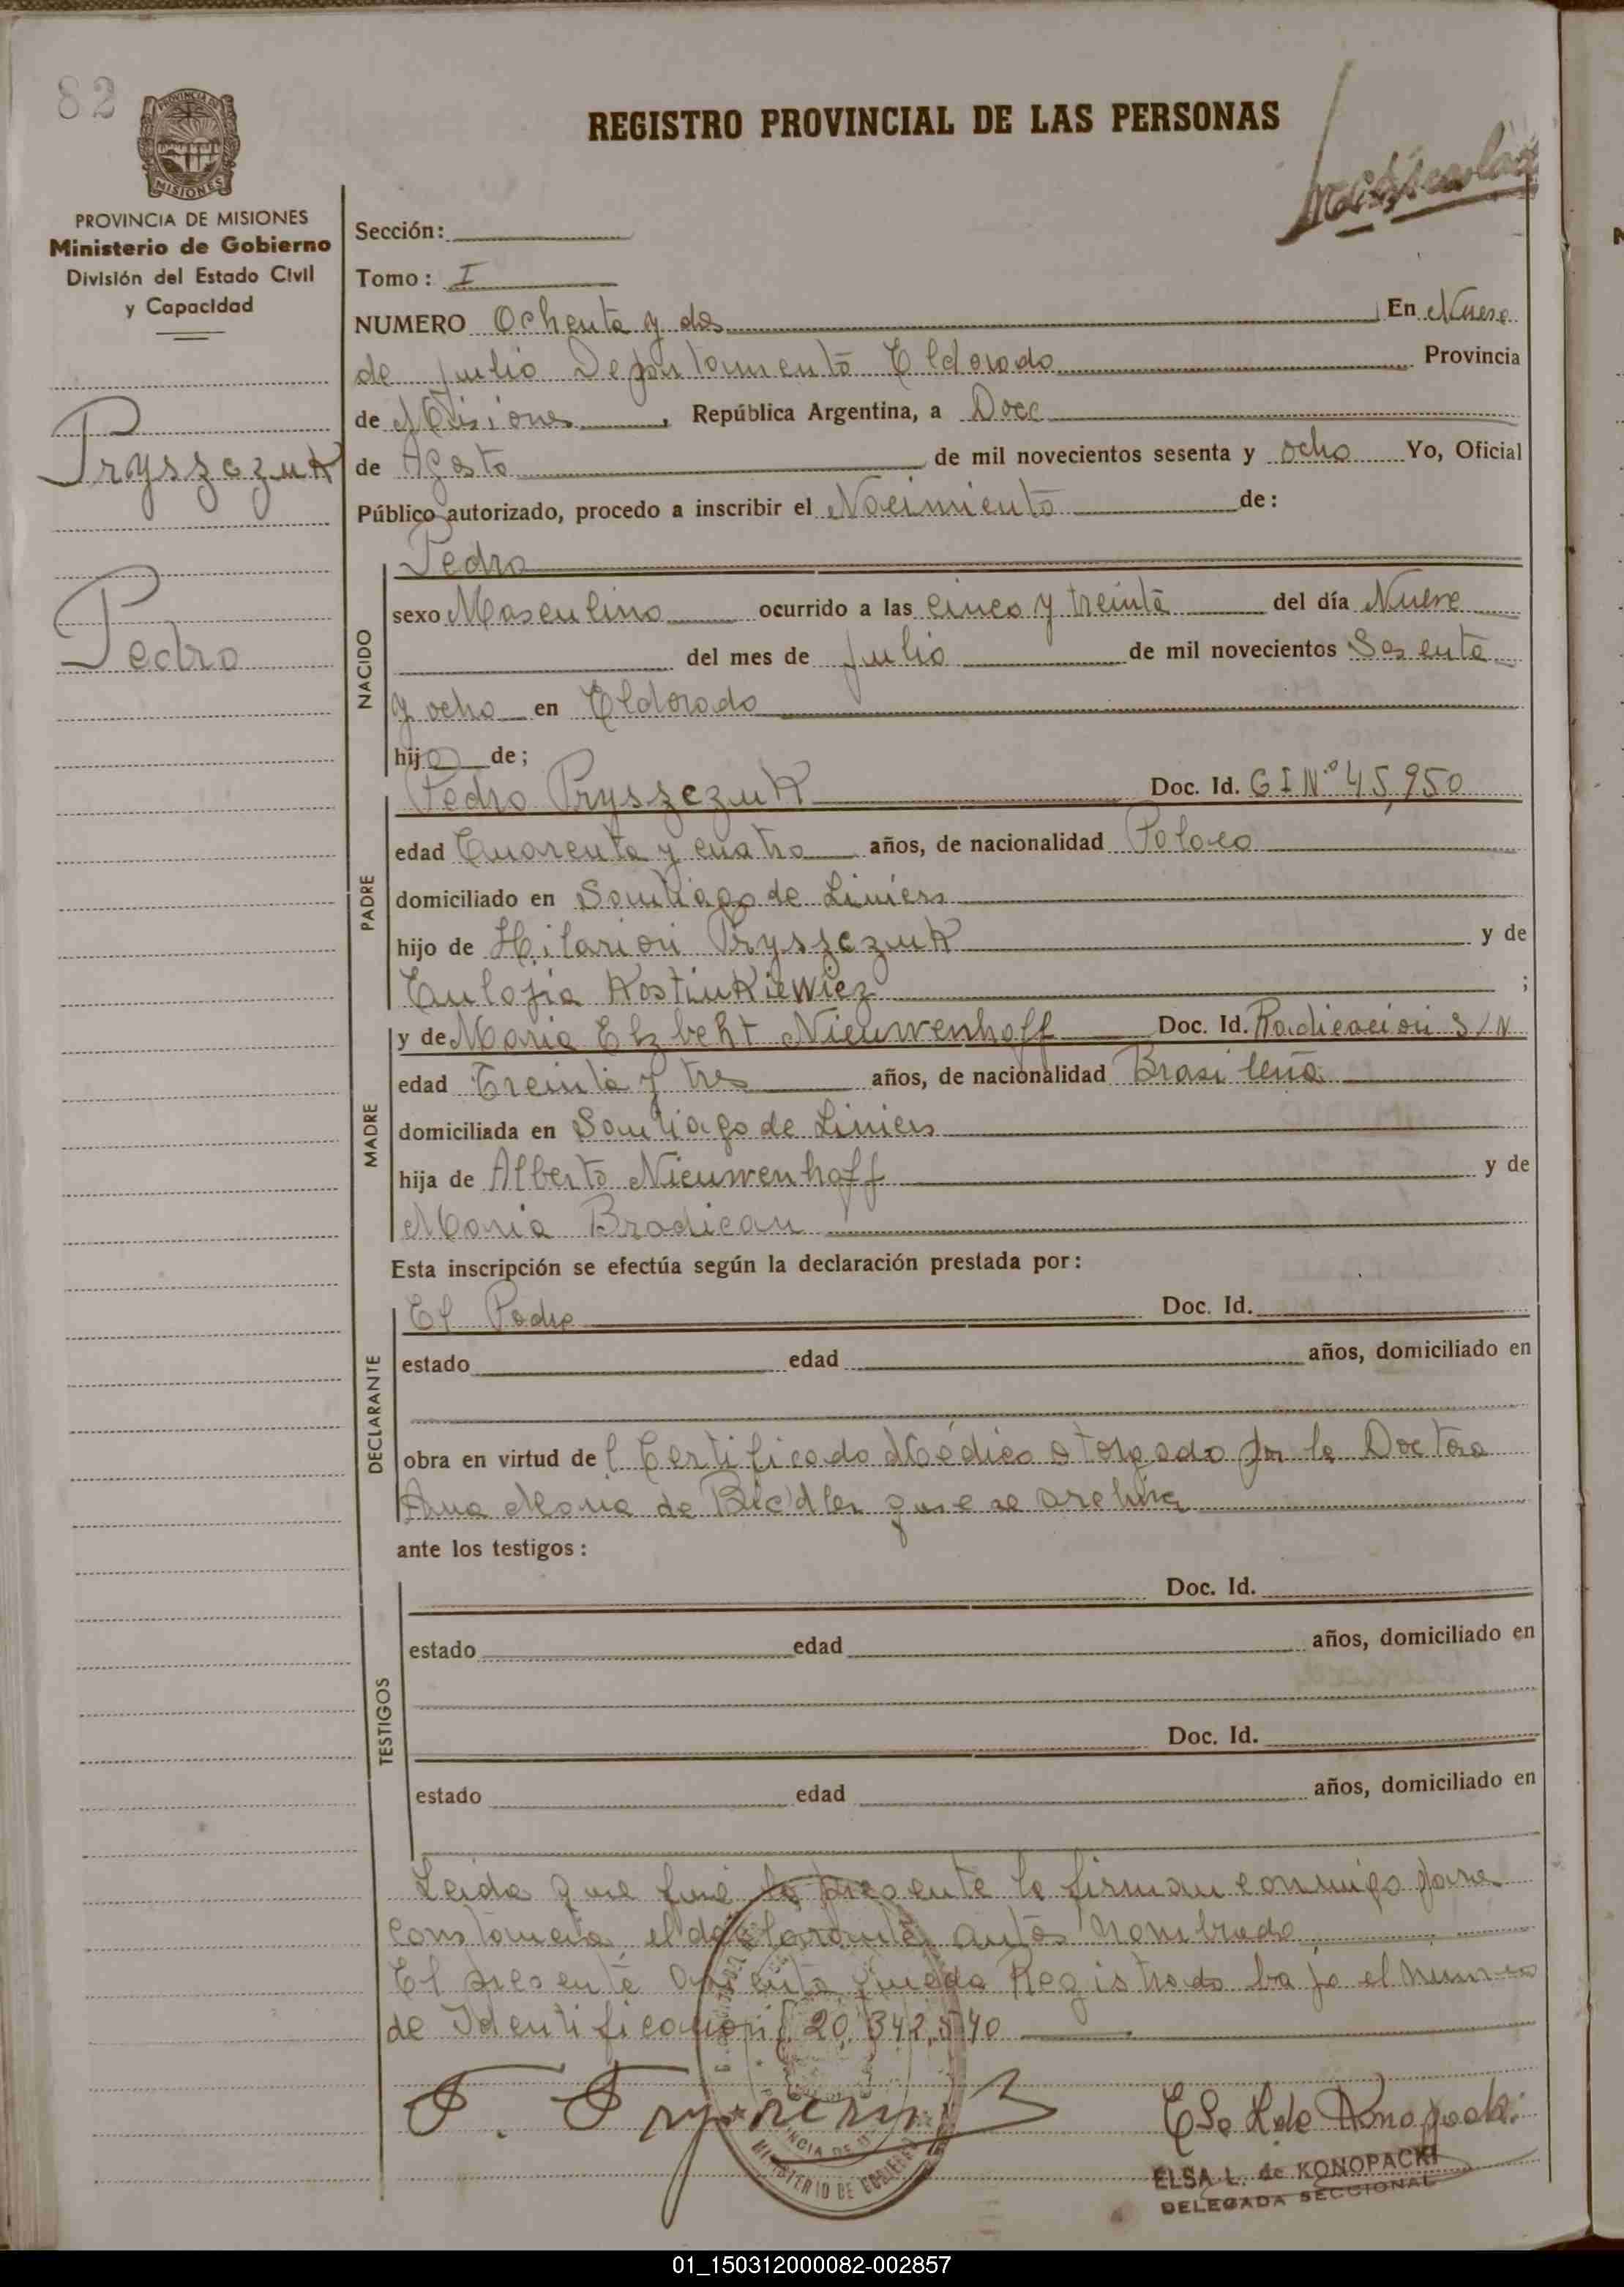 82
REGISTRO PROVINCIAL DE LAS PERSONAS
PROVINCIA DE MISIONES
Ministerio de Gobierno
División del Estado Civil
y Capacidad
Pryszczuk
Pedro
Sección:
Tomo: I
NUMERO Ochenta y dos En Nueve
de Julio Departamento Eldorado Provincia
de Misiones, República Argentina, a Doce
de Agosto de mil novecientos sesenta y ocho Yo, Oficial
Público autorizado, procedo a inscribir el Nacimiento de:
NACIDO
Pedro
sexo Masculino ocurrido a las cinco y treinta del día Nueve
del mes de Julio de mil novecientos Sesenta
y ocho en Eldorado
hijo de;
PADRE
Pedro Pryszczuk Doc. Id. C I Nº 45,950
edad Cuarenta y cuatro años, de nacionalidad Polaco
domiciliado en Santiago de Liniers
hijo de Hilarion Pryszczuk y de
Eulojia Kostiukiewicz;
MADRE
y de Maria Elzbeht Nieuwenhoff Doc. Id. Radicacion S/N
edad Treinta y tres años, de nacionalidad Brasileña
domiciliada en Santiago de Liniers
hija de Alberto Nieuwenhoff y de
Maria Bradican
Esta inscripción se efectúa según la declaración prestada por:
DECLARANTE
El Padre Doc. Id.
estado edad años, domiciliado en
obra en virtud del Certificado Médico otorgado por la Doctora
Ana Maria de que se archiva
ante los testigos:
TESTIGOS
Doc. Id.
estado edad años, domiciliado en
Doc. Id.
estado edad años, domiciliado en
Leida que fué la presente la firman conmigo para
constancia, el declarante antes nombrado
El presente asiento queda Registrado bajo el numero
de Identificacion 20.342.540
MINISTERIO DE GOBIERNO
ELSA L. de KONOPACKI
DELEGADA SECCIONAL
01_150312000082-002857